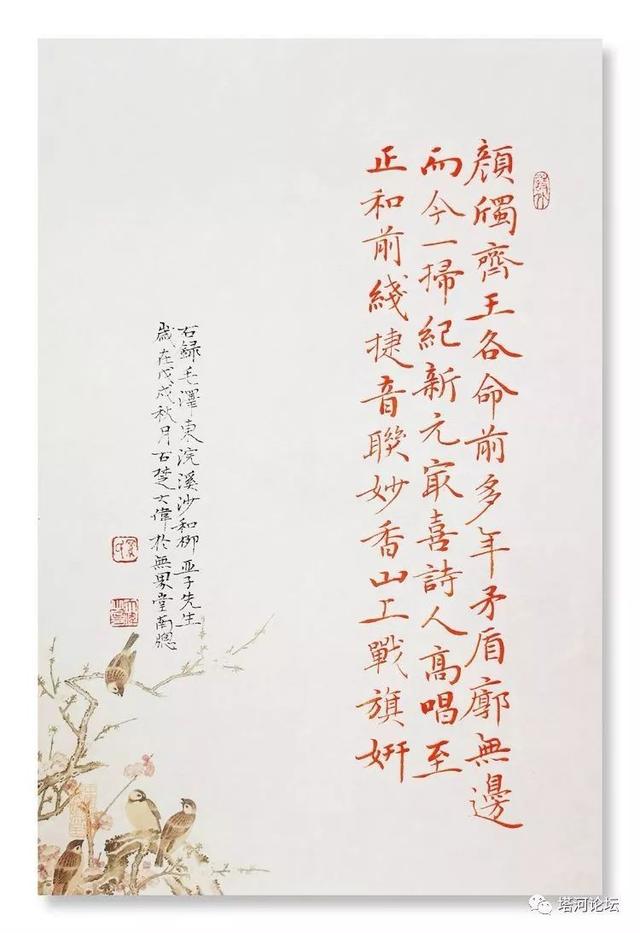 顏斶齊王各命前多年矛盾廓無邊
而今一掃紀新元冣喜詩人高唱至
正和前綫捷音聯妙香山上戰旗妍
右録毛澤東浣溪沙和柳亞子先生
歲在戊戌秋月古楚大偉於無界堂南窻
塔河论坛